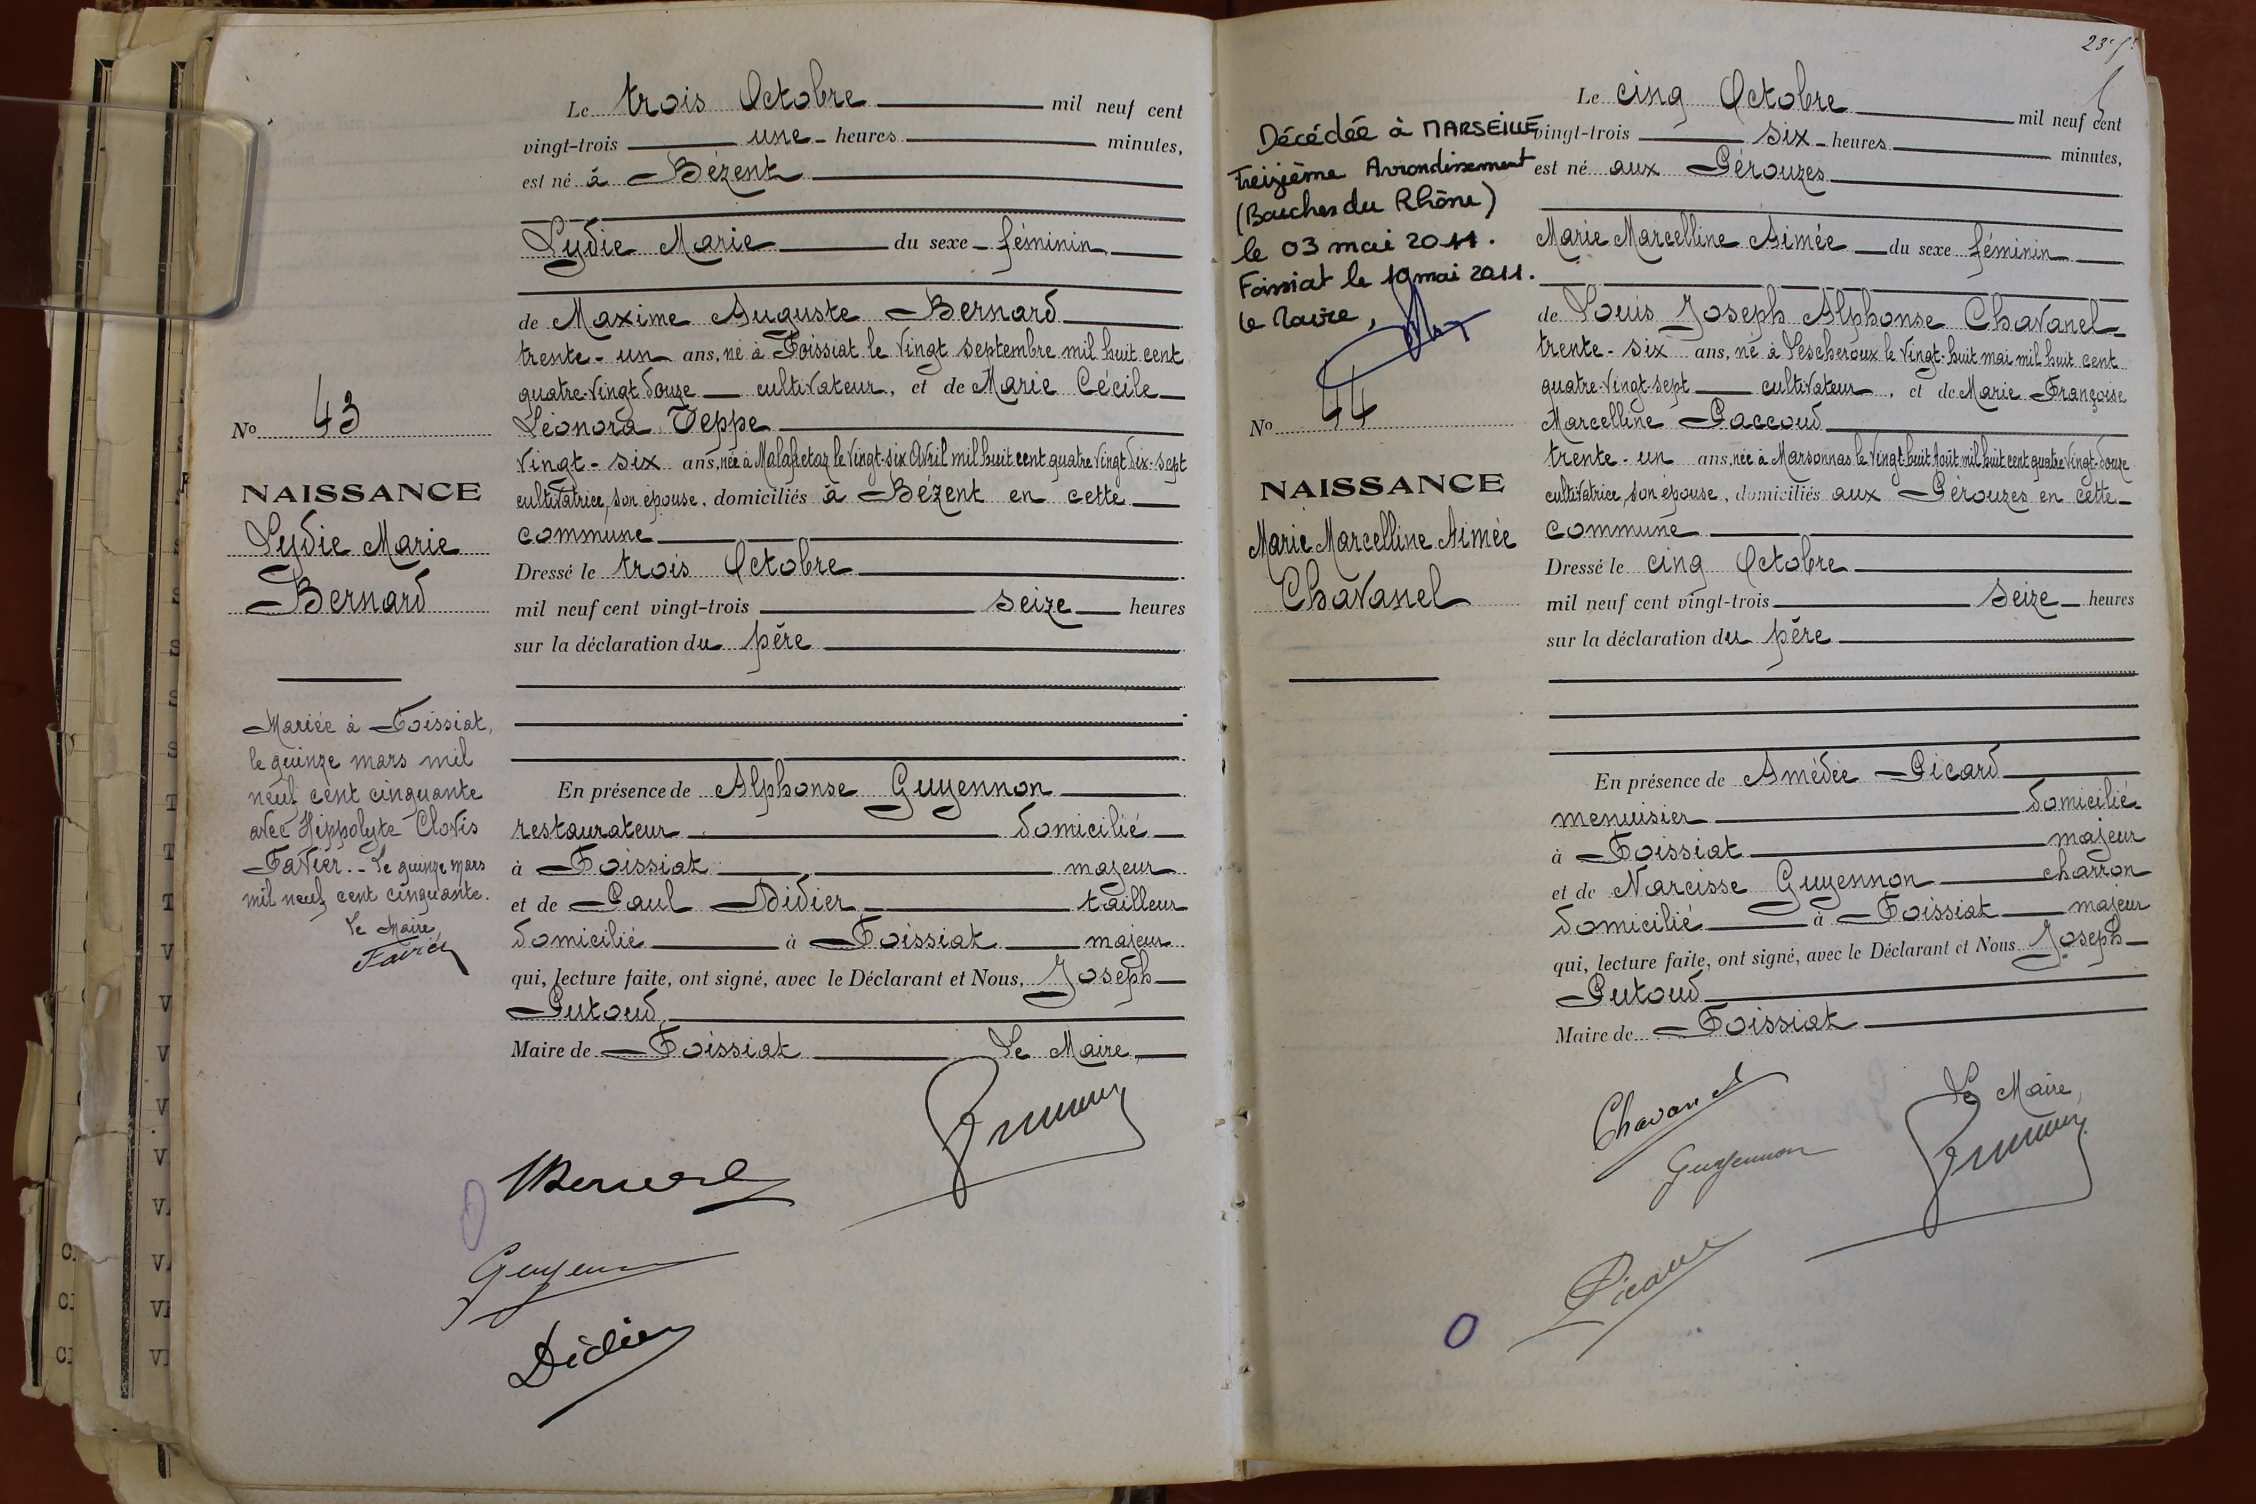 Le trois Octobre mil neuf cent
vingt-trois une heures minutes,
est né à Bézent
Lydie Marie du sexe féminin
de Maxime Auguste Bernard
trente-un ans, né à Foissiat le vingt septembre mil huit cent
quatre-vingt douze cultivateur, et de Marie Cécile
Léonora Veppe
vingt-six ans, née à Malafretaz le vingt-six Avril mil huit cent quatre vingt dix-sept
cultivatrice, son épouse, domiciliés à Bézent en cette
commune
Dressé le trois Octobre
mil neuf cent vingt-trois seize heures
sur la déclaration du père
En présence de Alphonse Guyennon
restaurateur domicilié
à Foissiat majeur
et de Paul Didier tailleur
domicilié à Foissiat majeur
qui, lecture faite, ont signé, avec le Déclarant et Nous, Joseph
Putoud
Maire de Foissiat Le Maire,
Bernard
Guyennon
Didier
No 43
NAISSANCE
Lydie Marie
Bernard
Mariée à Foissiat,
le quinze mars mil
neuf cent cinquante
avec Hippolyte Clovis
Favier. - Le quinze mars
mil neuf cent cinquante.
Le Maire,
Favier
Le cinq Octobre mil neuf cent
vingt-trois six heures minutes,
est né aux Pérouzes
Marie Marcelline Aimée du sexe féminin
de Louis Joseph Alphonse Chavanel
trente-six ans, né à Lescheroux le vingt-huit mai mil huit cent
quatre-vingt-sept cultivateur, et de Marie Françoise
Marcelline Paccoud
trente-un ans, née à Marsonnas le vingt-huit Août mil huit cent quatre vingt-douze
cultivatrice, son épouse, domiciliés aux Pérouzes en cette
commune
Dressé le cinq Octobre
mil neuf cent vingt-trois seize heures
sur la déclaration du père
En présence de Amédée Picard
menuisier domicilié
à Foissiat majeur
et de Narcisse Guyennon charron
domicilié à Foissiat majeur
qui, lecture faite, ont signé, avec le Déclarant et Nous Joseph
Putoud
Maire de Foissiat
Le Maire,
Chavanel
Guyennon
Picard
Décédée à MARSEILLE
Treizième Arrondissement
(Bouches du Rhône)
le 03 mai 2011.
Foissiat le 19 mai 2011.
Le Maire,
No 44
NAISSANCE
Marie Marcelline Aimée
Chavanel